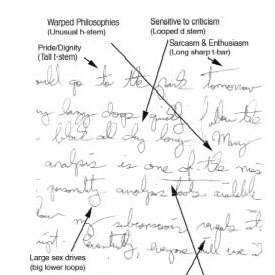 Warped Philosophies
(Unusual h-stem)
Sensitive to criticism
(Looped d stem)
Pride/Dignity
(Tall t-stem)
Sarcasm & Enthusiasm
(Long sharp t-bar)
go to the park tomorrow
lazy dogs quietly
black all day long. Many
analysis is one of the
personality analysis tools
my subconscious reveals
everyone will use
Large sex drives
(big lower loops)